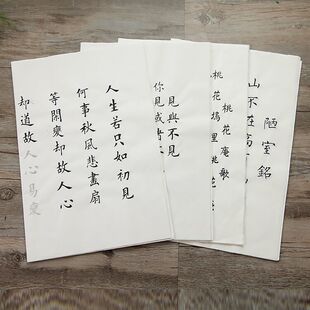 人生若只如初見
何事秋風悲畫扇
等閑變却故人心
却道故人心易變
見與不見
你見或者
桃花庵歌
桃花塢里桃花
陋室銘
山不在高